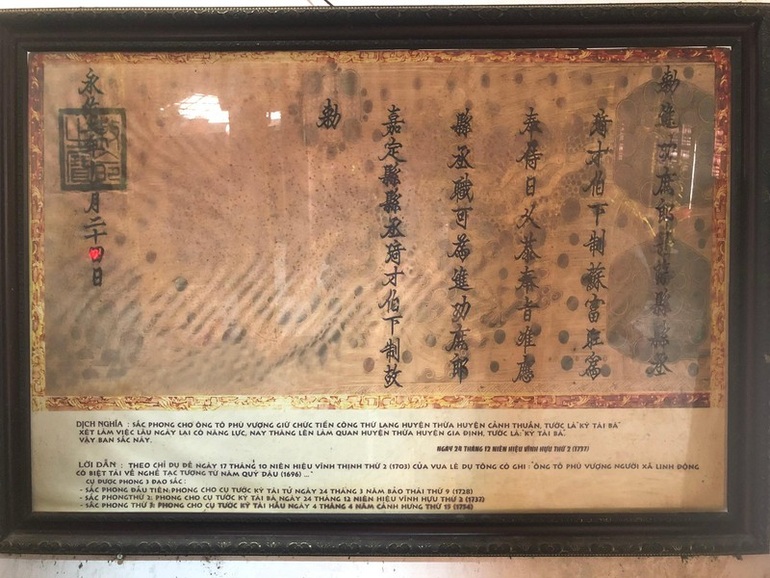 勅進功庶郎縣縣丞
琦才伯下制蘇富旺為
奉侍日久恭奉旨准應
縣丞職可為進功庶郎
嘉定縣縣丞琦才伯下制故
勅
永佑月二十四日
DỊCH NGHĨA : SẮC PHONG CHO ÔNG TÔ PHÚ VƯỢNG GIỮ CHỨC TIẾN CÔNG THỨ LANG HUYỆN THỪA HUYỆN CẢNH THUẦN, TƯỚC LÀ"KỲ TÀI BÁ"
XÉT LÀM VIỆC LÂU NGÀY LẠI CÓ NĂNG LỰC, NAY THĂNG LÊN LÀM QUAN HUYỆN THỪA HUYỆN GIA ĐỊNH, TƯỚC LÀ:"KỲ TÀI BÁ".
VẬY BAN SẮC NÀY.
NGÀY 24 THÁNG 12 NIÊN HIỆU VĨNH HỰU THỨ 2 (1737)
LỜI DẪN : THEO CHỈ DỤ ĐỀ NGÀY 17 THÁNG 10 NIÊN HIỆU VĨNH THỊNH THỨ 2 (1703) CỦA VUA LÊ DỤ TÔNG CÓ GHI : "ÔNG TÔ PHÚ VƯỢNG NGƯỜI XÃ LINH ĐỘNG
CÓ BIỆT TÀI VỀ NGHỀ TẠC TƯỢNG TỪ NĂM QUÝ DẬU (1696) ..."
CỤ ĐƯỢC PHONG 3 ĐẠO SẮC :
- SẮC PHONG ĐẦU TIÊN:PHONG CHO CỤ TƯỚC KỲ TÀI TỬ NGÀY 24 THÁNG 3 NĂM BẢO THÁI THỨ 9 (1728)
- SẮC PHONGTHỨ 2: PHONG CHO CỤ TƯỚC KỲ TÀI BÁ NGÀY 24 THÁNG 12 NIÊN HIỆU VĨNH HỰU THỨ 2 (1737)
- SẮC PHONG THỨ 3: PHONG CHO CỤ TƯỚC KỲ TÀI HẦU NGÀY 4 THÁNG 4 NĂM CẢNH HƯNG THỨ 15 (1754)